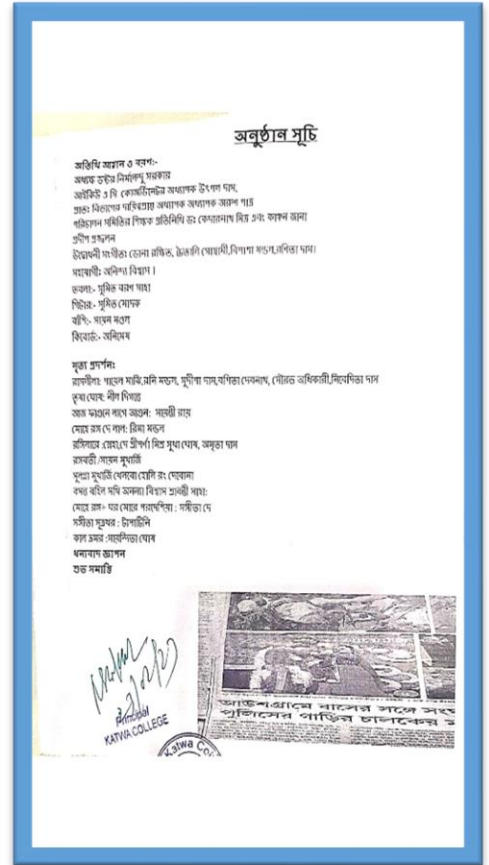 অনুষ্ঠান সূচি
অতিথি আহ্বান ও বরণ:-
অধ্যক্ষ ডক্টর নির্মলেন্দু সরকার
আইকিউ এ সি কোঅর্ডিনেটর অধ্যাপক উৎপল দাস,
প্রাতঃ বিভাগের দায়িত্বপ্রাপ্ত অধ্যাপক অধ্যাপক অরুপ পাত্র
পরিচালন সমিতির শিক্ষক প্রতিনিধি ডঃ কেদারনাথ মিত্র এবং কাঞ্চন জানা
প্রদীপ প্রজ্জ্বলন
উদ্বোধনী সংগীত: ডোনা রক্ষিত, চৈতালি গোস্বামী,বিপাশা মন্ডল,রণিতা দাস।
সহযোগী: অনিন্দ্য বিশ্বাস ।
তবলা:- সুমিত বরণ সাহা
গিটার:- সুমিত মোদক
বাঁশি:- সায়ন মণ্ডল
কিবোর্ড:- অনিমেষ
নৃত্য প্রদর্শন:
রাসলীলা: পায়েল মাঝি,রনি মন্ডল, সুদীপা দাস,বর্ণিতা দেবনাথ, সৌরভ অধিকারী,নিবেদিতা দাস
তৃষা ঘোষ: নীল দিগন্তে
আজ ফাগুনে লাগে আগুন: সায়ন্তী রায়
মোহে রঙ্গ দে লাল: রিমা মন্ডল
রঙ্গিলারে :স্নেহা,দে শ্রীপর্ণা মিত্র সুধা ঘোষ, অমৃতা দাস
রসবতী /সায়ন মুখার্জি
মুখার্জি খেলবো হোলি রং দেবোনা
বসন্ত বহিল সখি অনন্যা বিশ্বাস শ্রাবন্তী সাহা:
মোহে রঙ্গ+ ঘর মোরে পরদেশিয়া : সঙ্গীতা দে
সঙ্গীতা সূত্রধর : টাপাটিনি
কাল ভ্রমর :সায়ন্দিতা ঘোষ
ধন্যবাদ জ্ঞাপন
শুভ সমাপ্তি
Principal
KATWA COLLEGE
Katwa Co
আউশগ্রামে বাসের সঙ্গে সংঘ
পুলিসের গাড়ির চালকের